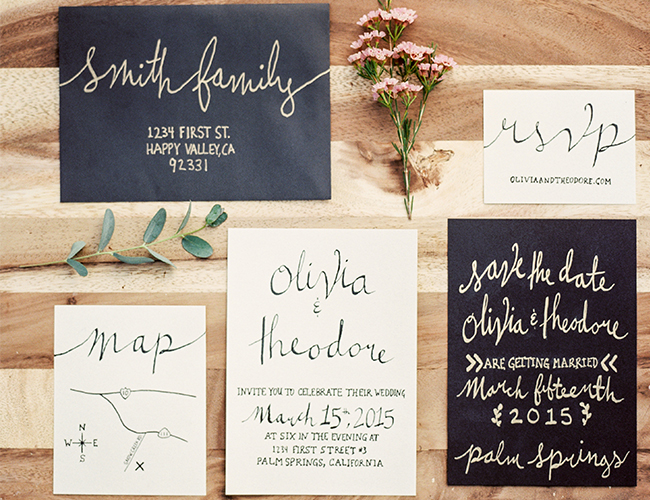 smith family
1234 FIRST ST.
HAPPY VALLEY, CA
92331
rsvp
OLIVIAANDTHEODORE.COM
map
N
W E
S
X
Olivia
&
theodore
INVITE YOU TO CELEBRATE THEIR WEDDING
March 15th, 2015
AT SIX IN THE EVENING AT
1234 FIRST STREET #3
PALM SPRINGS, CALIFORNIA
save the date
Olivia & theodore
ARE GETTING MARRIED
March fifteenth
2015
palm springs